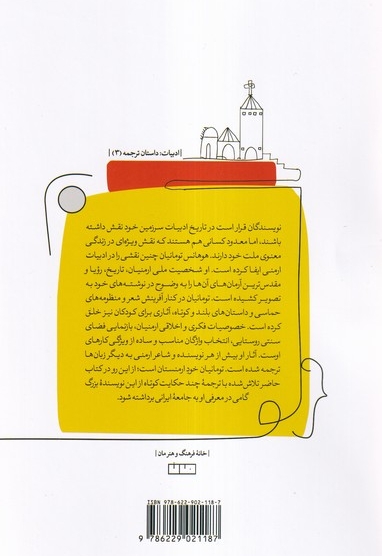 |ادبیات: داستان ترجمه (۳)|
نویسندگان قرار است در تاریخ ادبیات سرزمین خود نقش داشته
باشند، اما معدود کسانی هم هستند که نقش ویژه‌ای در زندگی
معنوی ملت خود دارند. هوهانس تومانیان چنین نقشی را در ادبیات
ارمنی ایفا کرده است. او شخصیت ملی ارمنیان، تاریخ، رؤیا و
مقدس‌ترین آرمان‌های آن‌ها را به وضوح در نوشته‌های خود به
تصویر کشیده است. تومانیان در کنار آفرینش شعر و منظومه‌های
حماسی و داستان‌های بلند و کوتاه، آثاری برای کودکان نیز خلق
کرده است. خصوصیات فکری و اخلاقی ارمنیان، بازنمایی فضای
سنتی روستایی، انتخاب واژگان مناسب و ساده از ویژگی کارهای
اوست. آثار او بیش از هر نویسنده و شاعر ارمنی به دیگر زبان‌ها
ترجمه شده است. تومانیان خودِ ارمنستان است؛ از این رو در کتاب
حاضر تلاش شده با ترجمهٔ چند حکایت کوتاه از این نویسندهٔ بزرگ
گامی در معرفی او به جامعهٔ ایرانی برداشته شود.
|خانهٔ فرهنگ و هنر مان|
ISBN 978-622-902-118-7
9 786229 021187